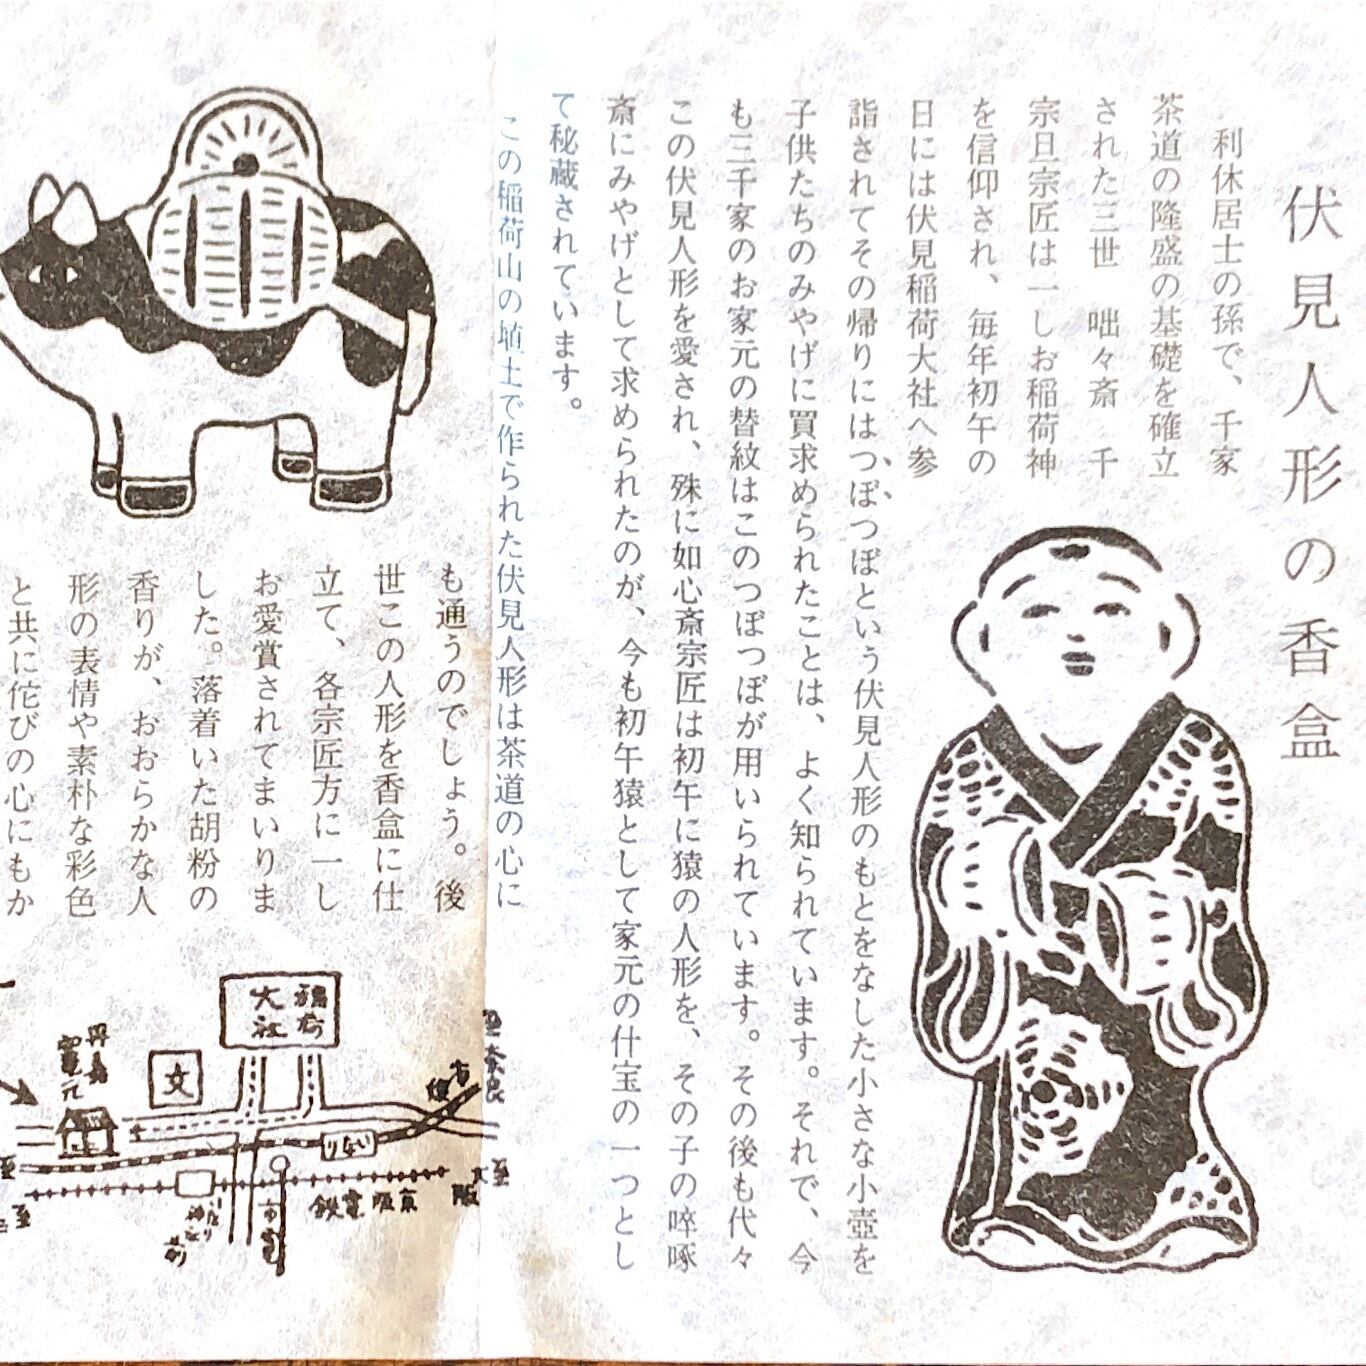 伏見人形の香盒
利休居士の孫で、千家
茶道の隆盛の基礎を確立
された三世　咄々斎　千
宗旦宗匠は一しお稲荷神
を信仰され、毎年初午の
日には伏見稲荷大社へ参
詣されてその帰りにはつぽつぽという伏見人形のもとをなした小さな小壺を
子供たちのみやげに買求められたことは、よく知られています。それで、今
も三千家のお家元の替紋はこのつぽつぽが用いられています。その後も代々
この伏見人形を愛され、殊に如心斎宗匠は初午に猿の人形を、その子の啐啄
斎にみやげとして求められたのが、今も初午猿として家元の什宝の一つとし
て秘蔵されています。
この稲荷山の埴土で作られた伏見人形は茶道の心に
も通うのでしょう。後
世この人形を香盒に仕
立て、各宗匠方に一し
お愛賞されてまいりま
した。落着いた胡粉の
香りが、おおらかな人
形の表情や素朴な彩色
と共に侘びの心にもか
稲荷
大社
文
丹嘉
窯元
至奈良
いなり
京阪電鉄
至大阪
市電